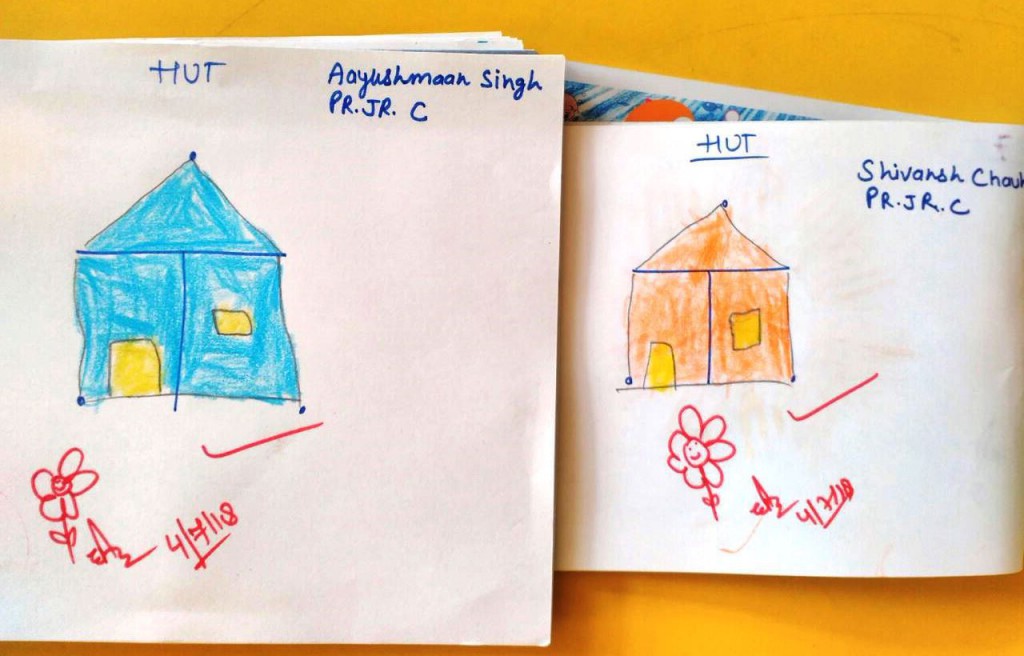 HUT
Aayushmaan Singh
PR.JR. C
4/7/18
HUT
Shivansh
PR.JR.C
4/7/18